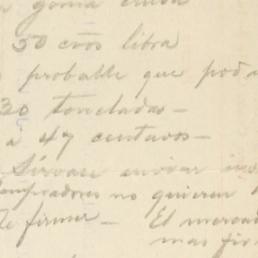 goma cruda
50 cvos libra
probable que pod
30 toneladas—
a 47 centavos—
Sírvase enviar
compradores no quieren
te firmer— El mercad
mas fir